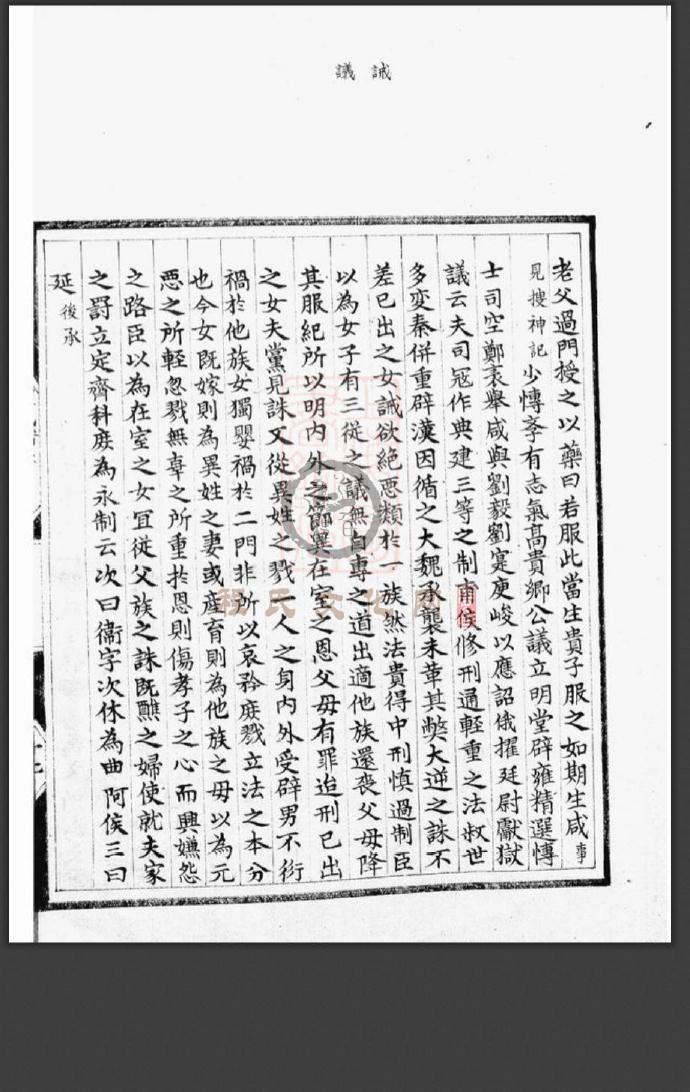 誡議
老父過門授之以藥曰若服此當生貴子服之如期生咸事
見搜神記少慱孝有志氣高貴鄉公議立明堂辟雍精選慱
士司空鄭袤舉咸與劉毅劉寔庾峻以應詔俄擢廷尉獻獄
議云夫司冦作典建三等之制甫侯修刑通輕重之法叔世
多変秦併重辟漢因循之大魏承襲未革其獘大逆之誅不
差已出之女誡欲絶悪𩔖於一族然法貴得中刑慎過制臣
以為女子有三從之議無自專之道出適他族還䘮父母降
其服紀所以明内外之節異在室之恩父母有罪追刑已出
之女夫黨見誅又從異姓之戮一人之身内外受辟男不衍
禍於他族女獨嬰禍於二門非所以哀矜庻戮立法之本分
也今女既嫁則為異姓之妻或産育則為他族之母以為元
悪之所輕忽戮無辜之所重扵恩則傷孝子之心而興嫌怨
之路臣以為在室之女宜從父族之誅既醮之婦使就夫家
之罸立定齊科庻為永制云次曰衞字次休為曲阿侯三曰
延後承
程氏文化网